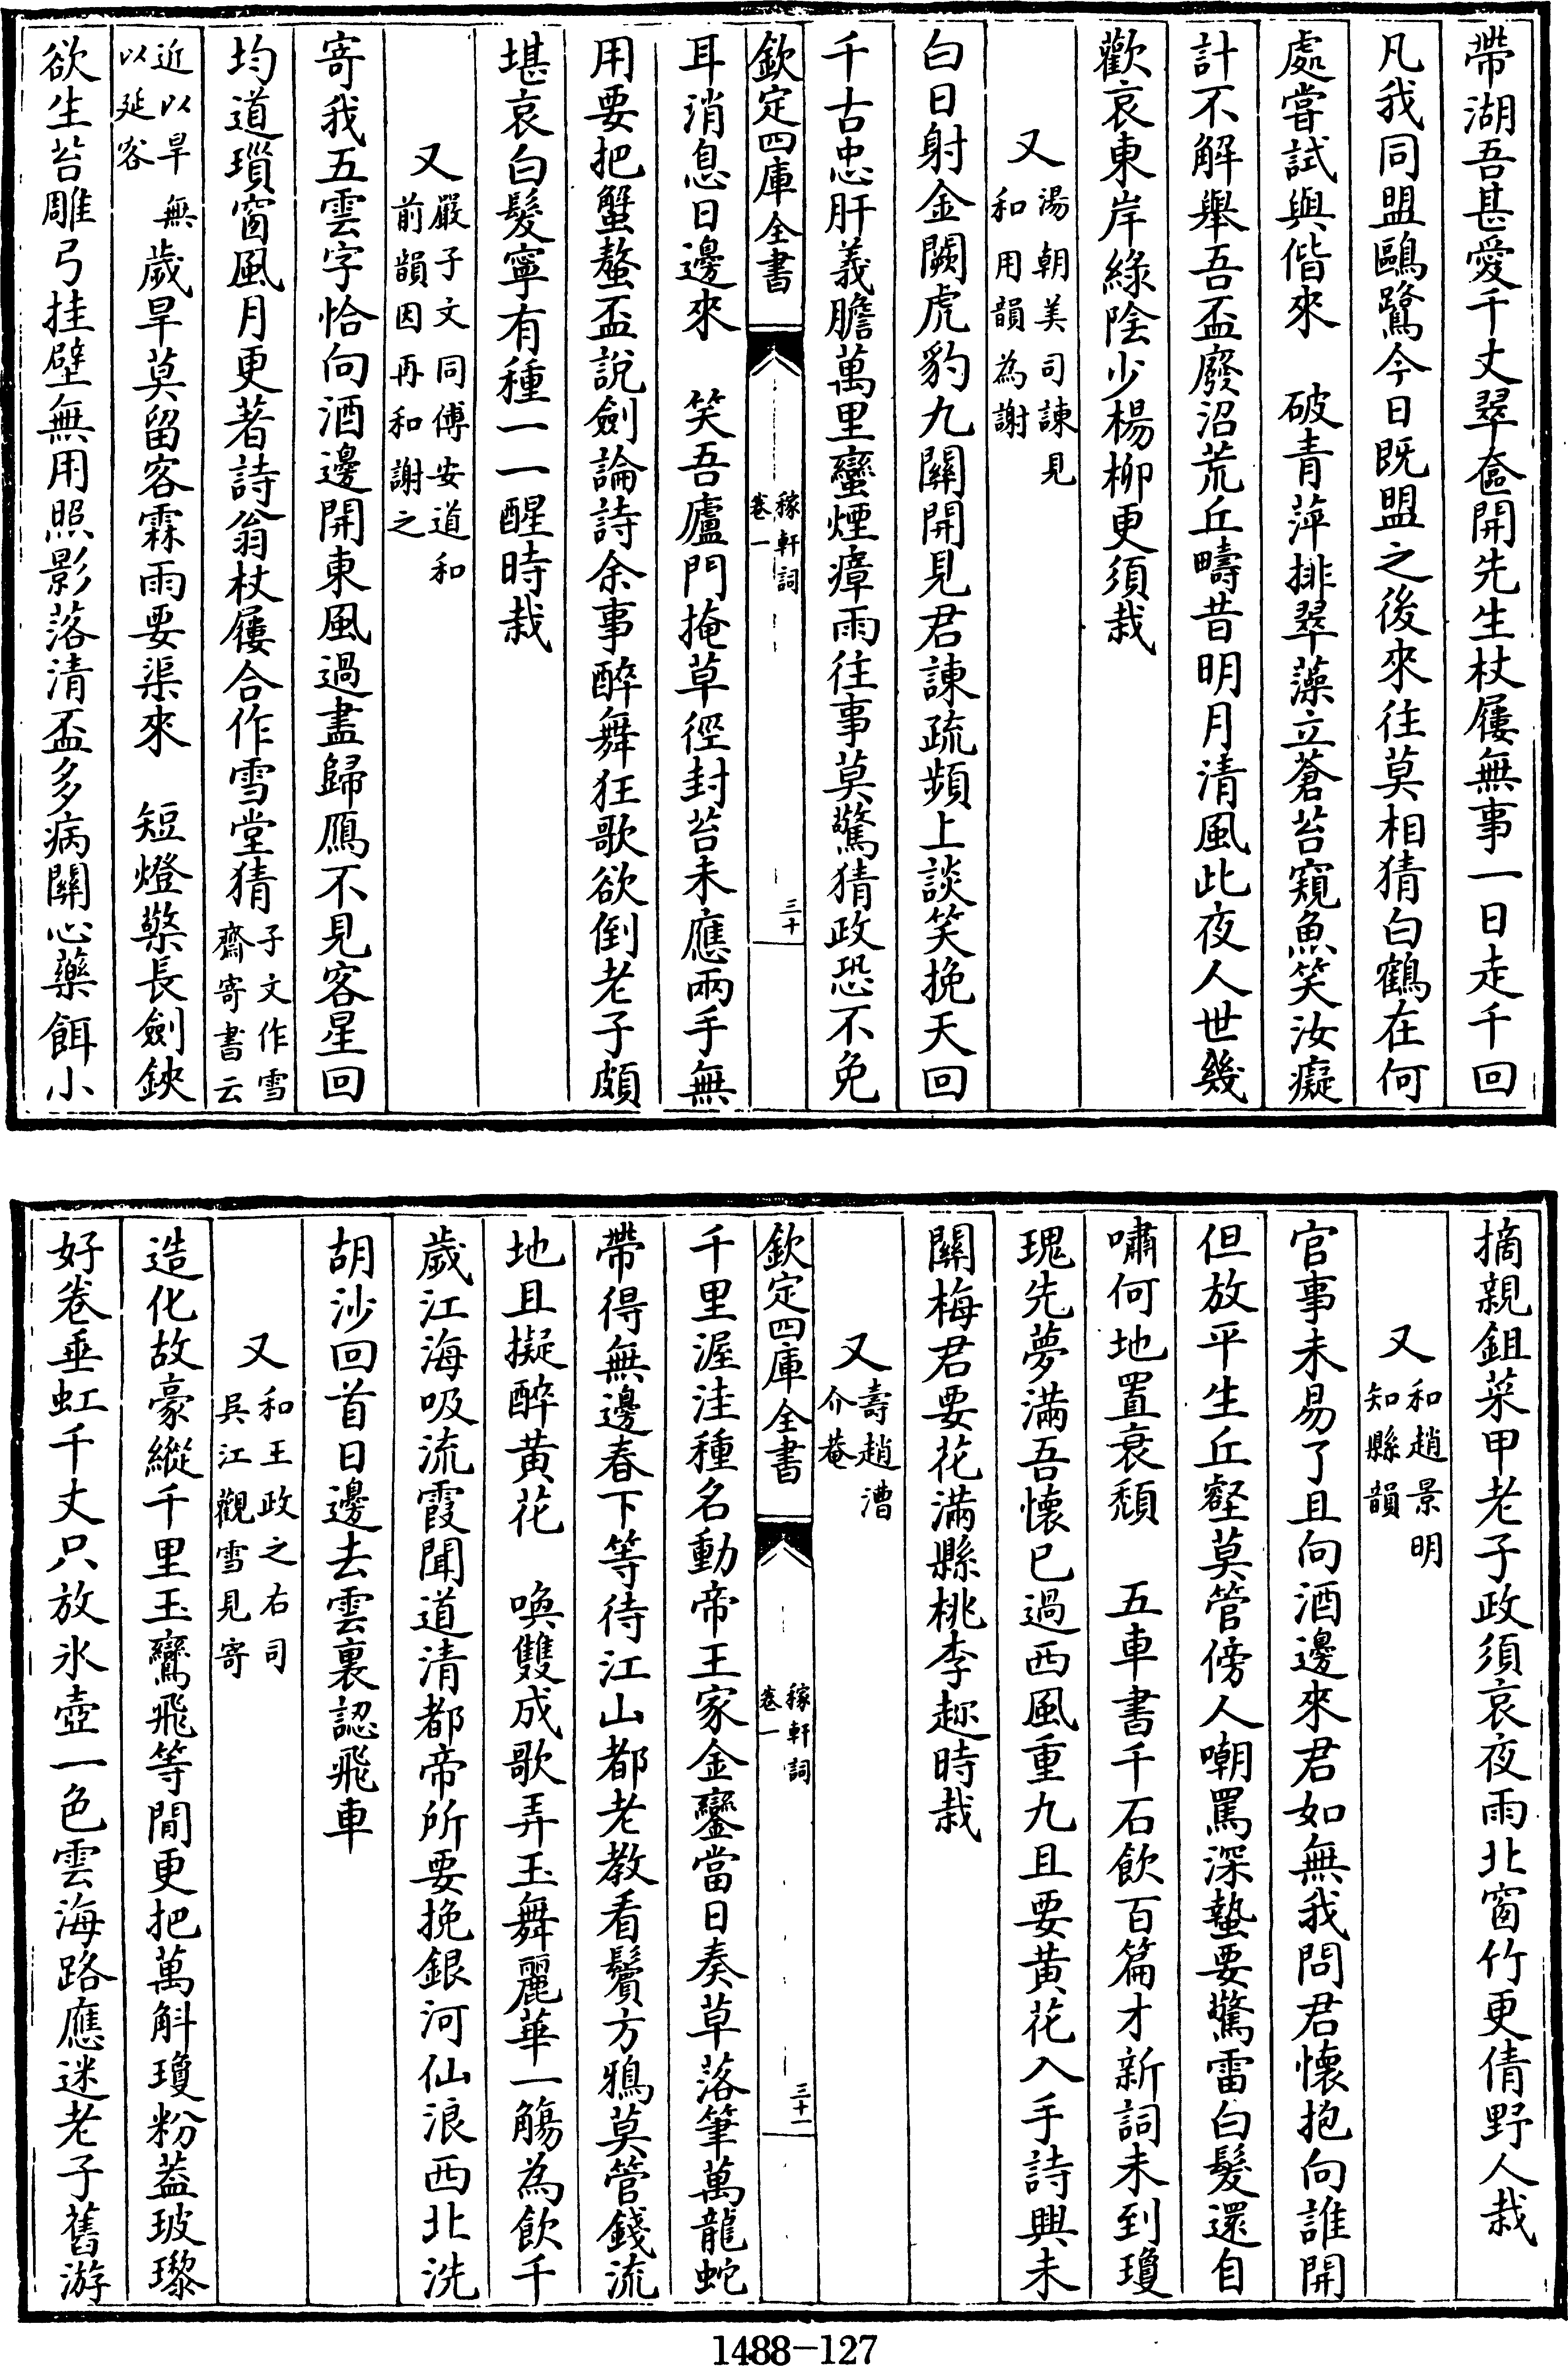 帶湖吾甚愛千丈翠奩開先生杖屨無事一日走千回
凡我同盟鷗鷺今日既盟之後來往莫相猜白鶴在何
處嘗試與偕來　破青萍排翠藻立蒼苔窺魚笑汝癡
計不解舉吾盃廢沼荒丘疇昔明月清風此夜人世幾
歡哀東岸綠陰少楊柳更須栽
又湯朝美司諫見
和用韻為謝
白日射金闕虎豹九關開見君諫疏頻上談笑挽天回
千古忠肝義膽萬里蠻煙瘴雨往事莫驚猜政恐不免
欽定四庫全書
稼軒詞
卷一
三十
耳消息日邊來　笑吾廬門掩草徑封苔未應兩手無
用要把蟹螯盃說劍論詩余事醉舞狂歌欲倒老子頗
堪哀白髮寧有種一一醒時栽
又嚴子文同傅安道和
前韻因再和謝之
寄我五雲字恰向酒邊開東風過盡歸鴈不見客星回
均道瑣窗風月更著詩翁杖屨合作雪堂猜子文作雪
齋寄書云
近以旱無
以延客
歲旱莫留客霖雨要渠來　短燈檠長劍鋏
欲生苔雕弓挂壁無用照影落清盃多病關心藥餌小
摘親鉏菜甲老子政須哀夜雨北窗竹更倩野人栽
又和趙景明
知縣韻
官事未易了且向酒邊來君如無我問君懷抱向誰開
但放平生丘壑莫管傍人嘲罵深蟄要驚雷白髮還自
嘯何地置衰頹　五車書千石飲百篇才新詞未到瓊
瑰先夢滿吾懷已過西風重九且要黃花入手詩興未
關梅君要花滿縣桃李趂時栽
又壽趙漕
介菴
欽定四庫全書
稼軒詞
卷一
三十一
千里渥洼種名動帝王家金鑾當日奏草落筆萬龍蛇
帶得無邊春下等待江山都老教看鬢方鴉莫管錢流
地且擬醉黃花　喚雙成歌弄玉舞麗華一觴為飲千
歲江海吸流霞聞道清都帝所要挽銀河仙浪西北洗
胡沙回首日邊去雲裏認飛車
又和王政之右司
吳江觀雪見寄
造化故豪縱千里玉鸞飛等閒更把萬斛瓊粉葢玻瓈
好卷垂虹千丈只放氷壺一色雲海路應迷老子舊游
1488-127